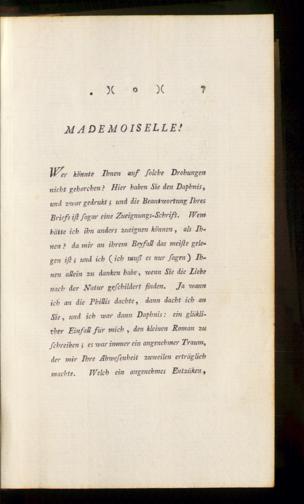 . )( o )( 7
MADEMOISELLE!
Wer könnte Ihnen auf solche Drohungen
nicht gehorchen? Hier haben Sie den Daphnis,
und zwar gedrukt; und die Beantwortung Ihres
Briefs ist sogar eine Zueignungs-Schrift. Wem
hätte ich ihn anders zueignen können, als Ih-
nen? da mir an ihrem Beyfall das meiste gele-
gen ist; und ich (ich muß es nur sagen) Ih-
nen allein zu danken habe, wenn Sie die Liebe
nach der Natur geschildert finden. Ja wann
ich an die Phillis dachte, dann dacht ich an
Sie, und ich war dann Daphnis: ein glükli-
cher Einfall für mich, den kleinen Roman zu
schreiben; es war immer ein angenehmer Traum,
der mir Ihre Abwesenheit zuweilen erträglich
machte. Welch ein angenehmes Entzüken,